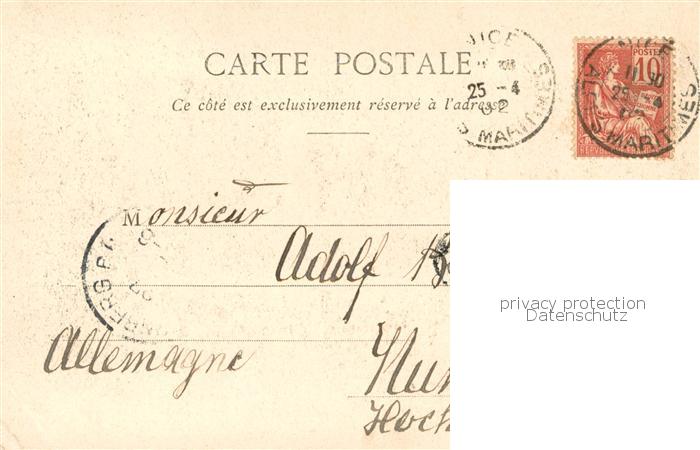 CARTE POSTALE
Ce côté est exclusivement réservé à l'adresse
NICE
25 -4
02
S MARITIMES
POSTES
10
NICE
11 30
25 -4
ALPES MARITIMES
Monsieur
Adolf
Allemagne
Nür
Hoch
privacy protection
Datenschutz